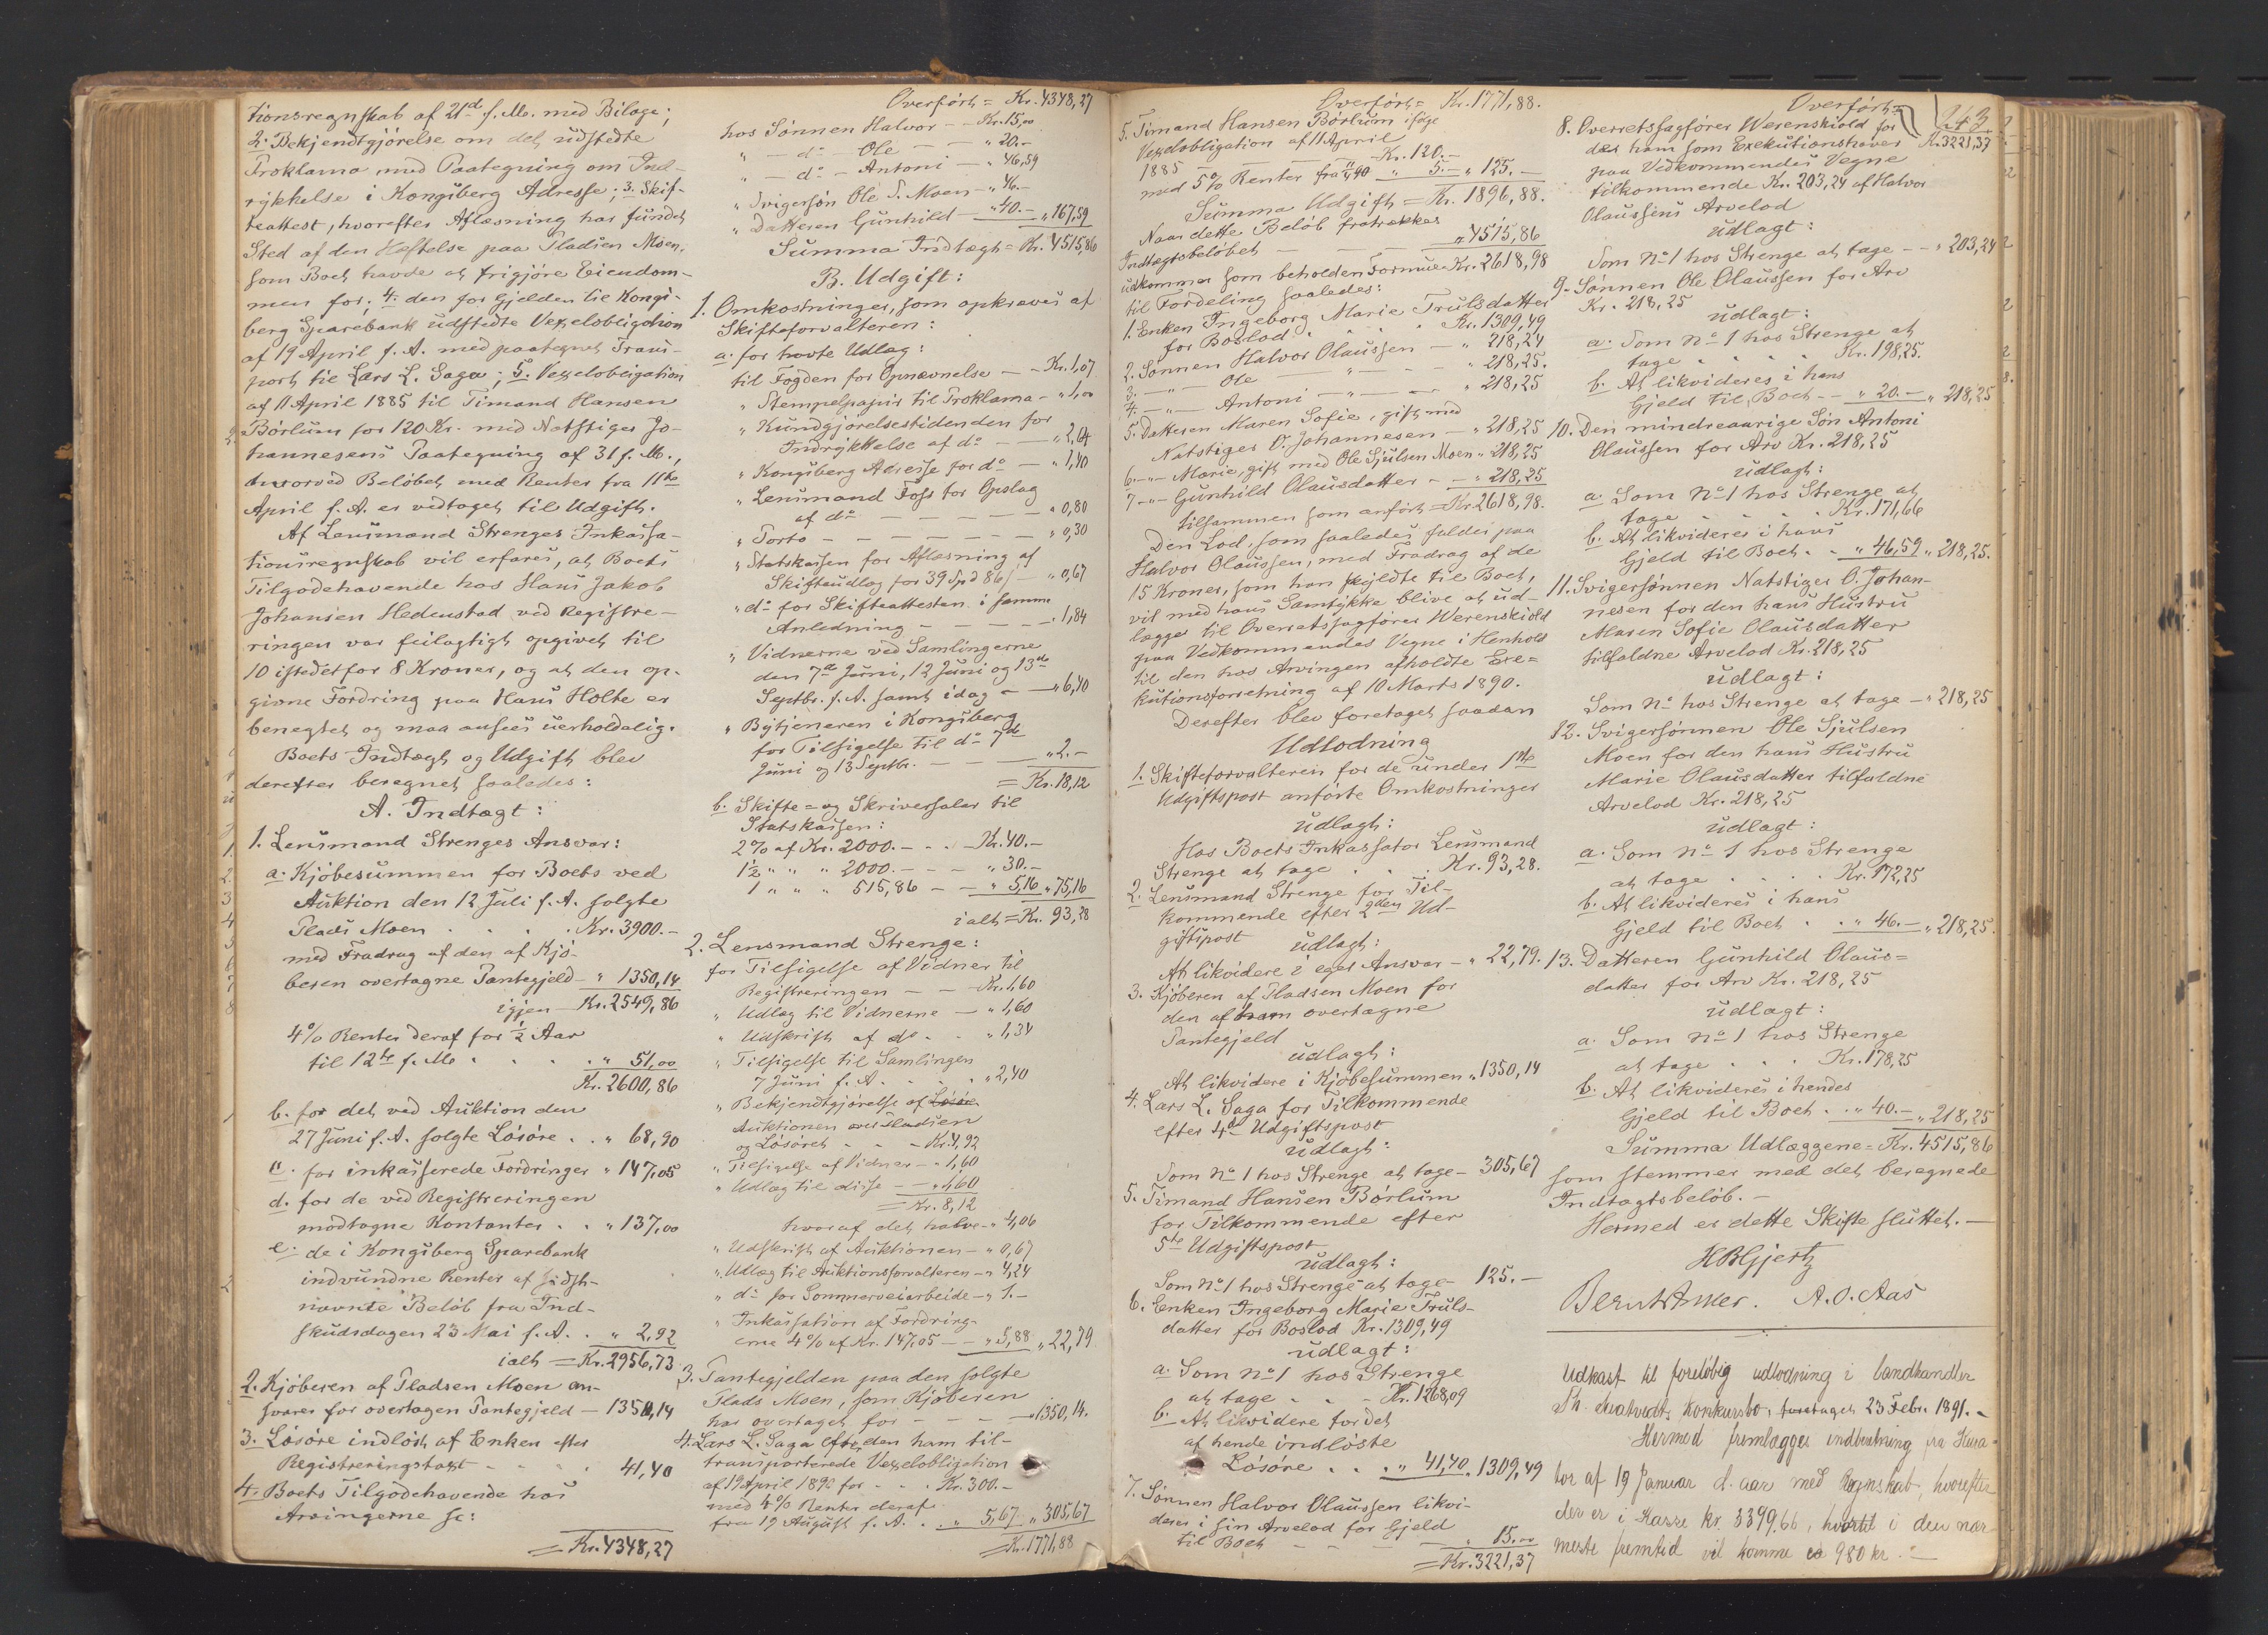 tionsregnskab af 21de f. M. med Bilage;
2. Bekjendtgjörelse om det udstedte
Proklama med Paategning om Ind-
rykkelse i Kongsberg Adresse; 3. Skif-
teattest, hvorefter Aflæsning har fundet
Sted af den Heftelse paa Pladsen Moen,
som Boet havde at frigjöre Eiendom-
men for; 4. den for Gjelden til Kongs-
berg Sparebank udstedte Vexelobligation
af 19 April f. A. med paategnet Trans-
port til Lars L. Saga; 5. Vexelobligation
af 11 April 1885 til Timand Hansen
Börlum for 120 Kr. med Natstiger Jo-
hannesens Paategning af 31 f. M.,
hvorved Belöbet med Renter fra 11te
April f. A. er vedtaget til Udgift.
Af Lensmand Strenges Inkassa-
tionsregnskab vil erfares, at Boets
Tilgodehavende hos Hans Jakob
Johansen Hedenstad ved Registre-
ringen var feilagtigt opgivet til
10 istedetfor 8 Kroner, og at den op-
givne Fordring paa Hans Holte er
benegtet og maa ansees uerholdelig.
Boets Indtægt og Udgift blev
derefter beregnet saaledes:
A. Indtægt:
1. Lensmand Strenges Ansvar:
a. Kjöbesummen for Boets ved
Auktion den 12 Juli f. A. solgte
Plads Moen . . . . Kr. 3900.-
med Fradrag af den af Kjö-
beren overtagne Pantegjeld - " 1350,14
igjen Kr. 2549,86
4% Renter deraf for ½ Aar
til 12te f. M. . . . . " 51,00
Kr. 2600,86
b. for det ved Auktion den
27 Juni f. A. solgte Lösöre . . " 68,90
c. for inkasserede Fordringer " 147,05
d. for de ved Registreringen
modtagne Kontanter . . " 137,00
e. de i Kongsberg Sparebank
indvundne Renter af sidst-
nævnte Belöb fra Ind-
skudsdagen 23 Mai f. A. . " 2,92
ialt = Kr. 2956,73
2. Kjöberen af Pladsen Moen an-
svarer for overtagen Pantegjeld - 1350,14
3. Lösöre indlöst af Enken efter
Registreringstaxt - - . . 41,40
4. Boets Tilgodehavende hos
Arvingerne sc:
= Kr. 4348,27
Overfört = Kr. 4348,27
hos Sönnen Halvor - - Kr. 15,00
" - do - Ole - - - " 20.-
" - do - Antoni - - " 46,59
" Svigersön Ole S. Moen - " 46.-
" Datteren Gunhild - " 40.- " 167,59
Summa Indtægt = Kr. 4515,86
B. Udgift:
1. Omkostninger, som opkræves af
Skifteforvalteren:
a. for havte Udlæg:
til Fogden for Opnævnelse - - Kr. 1,07
" Stempelpapir til Proklama - " 1,00
" Kundgjörelsestidenden for
Indrykkelse af do - - " 2,04
" Kongsberg Adresse for do - " 1,40
" Lensmand Foss for Opslag
af do - - - - - " 0,80
" Porto - - - - - - " 0,30
" Statskassen for Aflæsning af
Skifteudlæg for 39 Spd 86 s - " 0,67
" do for Skifteattesten i samme
Anledning - - - - - " 1,84
" Vidnerne ved Samlingerne
den 7de Juni, 12 Juni og 13de
Septbr. f. A. samt idag - - " 6,40
" Bytjeneren i Kongsberg
for Tilsigelse til do 7de
Juni og 13 Septbr. - - - " 2.-
= Kr. 18,12
b. Skifte- og Skriversalær til
Statskassen:
2% af Kr. 2000.- - . - Kr. 40.-
1½ " " " 2000.- - - " 30.-
1 " " " 515,86 - - " 5,16 " 75,16
ialt = Kr. 93,28
2. Lensmand Strenge:
for Tilsigelse af Vidner til
Registreringen - - - Kr. 1,60
" Udlæg til Vidnerne - " 1,60
" Udskrift af do . . " 1,34
" Tilsigelse til Samlingen
7 Juni f. A. . . . . " 2,40
" Bekjendtgjörelse af Lösöre
Auktionen over Pladsen
og Lösöret - - - Kr. 4,92
" Tilsigelse af Vidner - " 1,60
" Udlæg til disse - - " 1,60
= Kr. 8,12
hvoraf det halve - " 4,06
" Udskrift af Auktionen - " 0,67
" Udlæg til Auktionsforvalteren - " 4,24
" do for Sommerveiarbeide - " 1.-
" Inkassation af Fordring-
erne 4% af Kr. 147,05 - - " 5,88 " 22,79
3. Pantegjelden paa den solgte
Plads Moen, som Kjöberen
har overtaget for - - - - " 1350,14.
4. Lars L. Saga efter den ham til-
transporterede Vexelobligation
af 19 April 1890 for - . . Kr. 300.-
med 4% Renter deraf
fra 19 August f. A. . . " 5,67 " 305,67
= Kr. 1771,88
Overfört = Kr. 1771,88.
5. Timand Hansen Börlum ifölge
Vexelobligation af 11 April
1885 - - - Kr. 120.-
med 5% Renter fra 11/4 90 " 5.- " 125.-
Summa Udgift = Kr. 1896,88.
Naar dette Belöb fratrækkes
Indtægtsbelöbet - - - " 4515,86
udkommer som beholden Formue Kr. 2618,98
til Fordeling saaledes:
1. Enken Ingeborg Marie Trulsdatter
for Boslod . . . . Kr. 1309,49
2. Sönnen Halvor Olaussen - " 218,24
3. - " - Ole - " - - - " 218,25.
4. - " - Antoni - " - - " 218,25
5. Datteren Maren Sofie, gift med
Natstiger O. Johannesen - " 218,25
6. - " - Marie, gift med Ole Sjulsen Moen " 218,25
7. - " - Gunhild Olausdatter - - " 218,25
tilsammen som anfört = Kr. 2618,98.
Den Lod, som saaledes falder paa
Halvor Olaussen, med Fradrag af de
15 Kroner, som han skyldte til Boet,
vil med hans Samtykke blive at ud-
lægge til Overretssagförer Werenskiold
paa Vedkommendes Vegne i Henhold
til den hos Arvingen afholdte Exe-
kutionsforretning af 10 Marts 1890.
Derefter blev foretaget saadan
Udlodning
1. Skifteforvalteren for de under 1ste
Udgiftspost anförte Omkostninger
udlagt:
Hos Boets Inkassator Lensmand
Strenge at tage . . . Kr. 93,28.
2. Lensmand Strenge for Til-
kommende efter 2den Ud-
giftspost
udlagt:
At likvidere i eget Ansvar - " 22,79.
3. Kjöberen af Pladsen Moen for
den af ham overtagne
Pantegjeld
udlagt:
At likvidere i Kjöbesummen " 1350,14
4. Lars L. Saga for Tilkommende
efter 4de Udgiftspost
udlagt:
Som No 1 hos Strenge at tage - 305,67
5. Timand Hansen Börlum
for Tilkommende efter
5te Udgiftspost
udlagt:
Som No 1 hos Strenge at tage - 125.-
6. Enken Ingeborg Marie Truls-
datter for Boslod Kr. 1309,49
udlagt:
a. Som No 1 hos Strenge
at tage - . - Kr. 1268,09
b. At likvidere for det
af hende indlöste
Lösöre . . . " 41,40 " 1309,49
7. Sönnen Halvor Olaussen likvi-
deres i sin Arvelod for Gjeld
til Boet - - - - " 15.00
= Kr. 3221,37
243
Overfört =
Kr. 3221,37
8. Overretssagförer Werenskiold for
det ham som Exekutionshaver
paa Vedkommendes Vegne
tilkommende Kr. 203,24 af Halvor
Olaussens Arvelod
udlagt:
Som No 1 hos Strenge at tage - - " 203,24
9. Sönnen Ole Olaussen for Arv
Kr. 218,25
udlagt:
a. Som No 1 hos Strenge at
tage . . . . Kr. 198,25.
b. At likvideres i hans
Gjeld til Boet - - " 20.- " 218,25
10. Den mindreaarige Sön Antoni
Olaussen for Arv Kr. 218,25
udlagt:
a. Som No 1 hos Strenge at
tage . . . . Kr. 171,66
b. At likvideres i hans
Gjeld til Boet . . " 46,59 " 218,25.
11. Svigersönnen Natstiger O. Johan-
nesen for den hans Hustru
Maren Sofie Olausdatter
tilfaldne Arvelod Kr. 218,25
udlagt:
Som No hos Strenge at tage - " 218,25
12. Svigersönnen Ole Sjulsen
Moen for den hans Hustru
Marie Olausdatter tilfaldne
Arvelod Kr. 218,25
udlagt:
a. Som No 1 hos Strenge
at tage . . . . Kr. 172,25
b. At likvideres i hans
Gjeld til Boet . . " 46.- " 218,25.
13. Datteren Gunhild Olaus-
datter for Arv Kr. 218,25
udlagt:
a. Som No 1 hos Strenge
at tage . . . Kr. 178,25
b. At likvideres i hendes
Gjeld til Boet . . " 40.- " 218,25
Summa Udlæggene = Kr. 4515,86
som stemmer med det beregnede
Indtægtsbelöb. -
Hermed er dette Skifte sluttet. -
HBGjertz
Bernt Anker. A. O. Aas
Udkast til foreløbig udlodning i landhandler
Th. konkursbo, foretaget 23 Febr. 1891. -
Hermed fremlægges indberetning fra Kura-
tor af 19 Januar d. aar med Regnskab, hvorefter
der er i Kasse kr. 3399.66, hvortil i den nær-
meste fremtid vil komme ca 980 kr. -